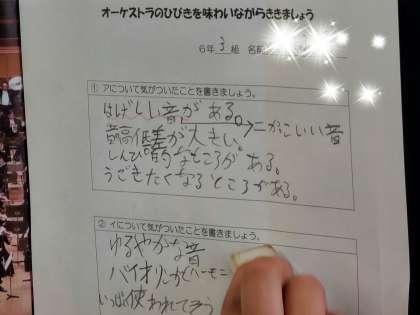 オーケストラのひびきを味わいながらききましょう
6年 3 組 名前
① アについて気がついたことを書きましょう。
はげしい音がある。
かっこいい音
音高低差が大きい。
しんぴ的なところがある。
うごきたくなるところがある。
② イについて気がついたことを書きましょう。
ゆるやかな音
バイオリン
使われてそう